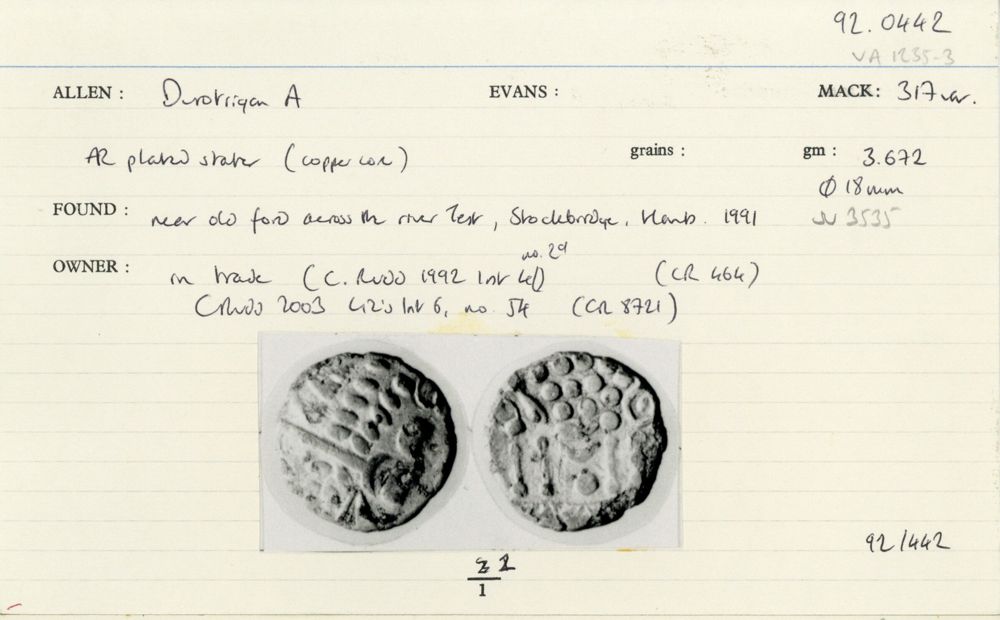 92.0442
VA 1235-3
ALLEN : Durotrigan A EVANS : MACK: 317 var.
AR plated stater (copper core) grains : gm : 3.672
Ø 18mm
FOUND : near old ford across the river Test, Stockbridge, Hants. 1991 3535
no. 29
OWNER : in trade (C. Rudd 1992 list (CR 464)
CRudd 2003 Liz's list 6, no. 54 (CR 8721)
92/442
2
1